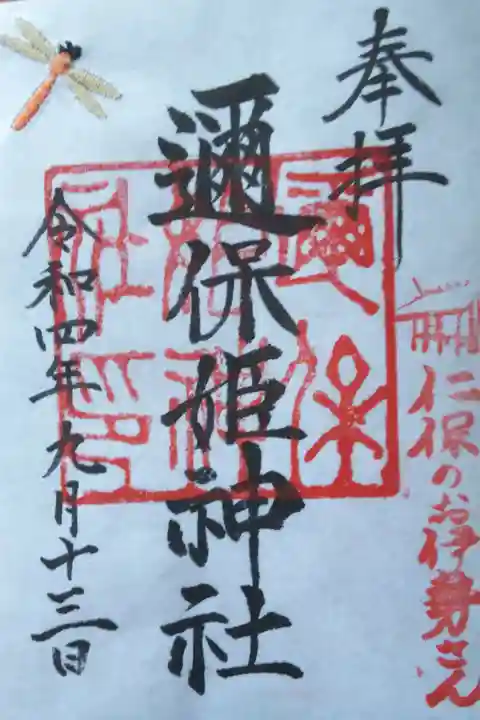 奉拝
仁保のお伊勢さん
邇保姫神社
令和四年九月十三日